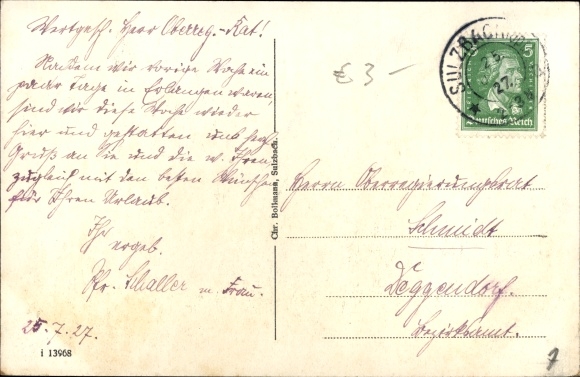 Wertgesch. Herr Oberreg.-Rat!
Nachdem wir vorige Woche ein
paar Tage in Erlangen waren,
sind wir diese Woche wieder
hier und gestatten uns herzl.
Gruß an Sie und die w. Frau
zugleich mit den besten Wünschen
für Ihren Urlaub.
Ihr
ergeb.
Pfr. Schaller m. Frau.
25.7.27.
i 13968
Chr. Bollmann, Sulzbach.
£ 3 -
SULZBACH
5
Deutsches Reich
Herrn Oberregierungsrat
Schmidt
Deggendorf.
Bezirksamt.
7